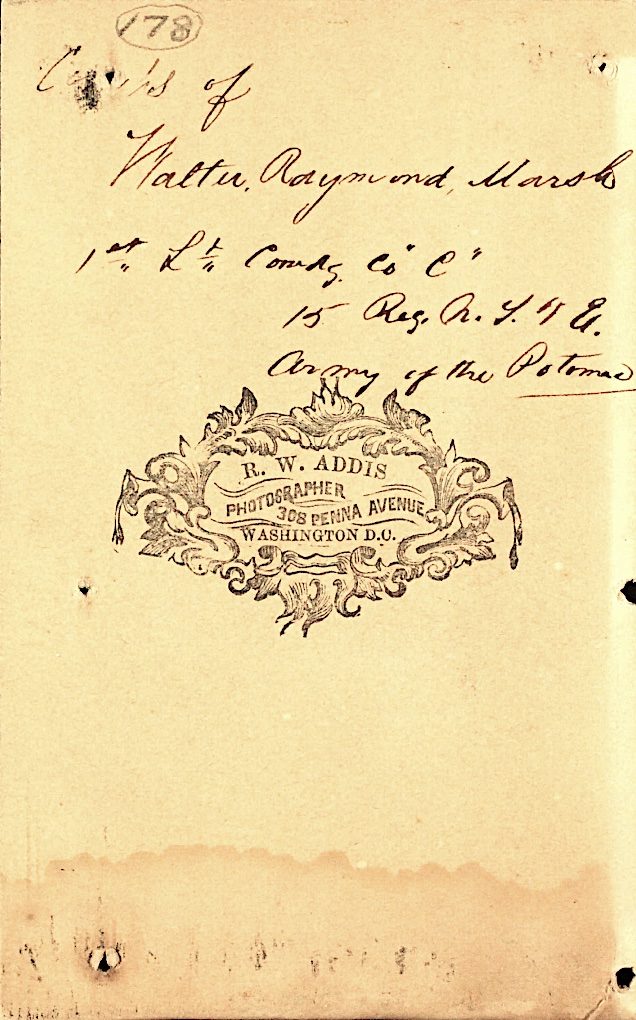 178
of
Walter, Raymond, Marsh
1st Lt Comdg. Co "C"
15 Reg. N. Y. V E.
Army of the Potomac
R. W. ADDIS
PHOTOGRAPHER
308 PENNA AVENUE
WASHINGTON D.C.